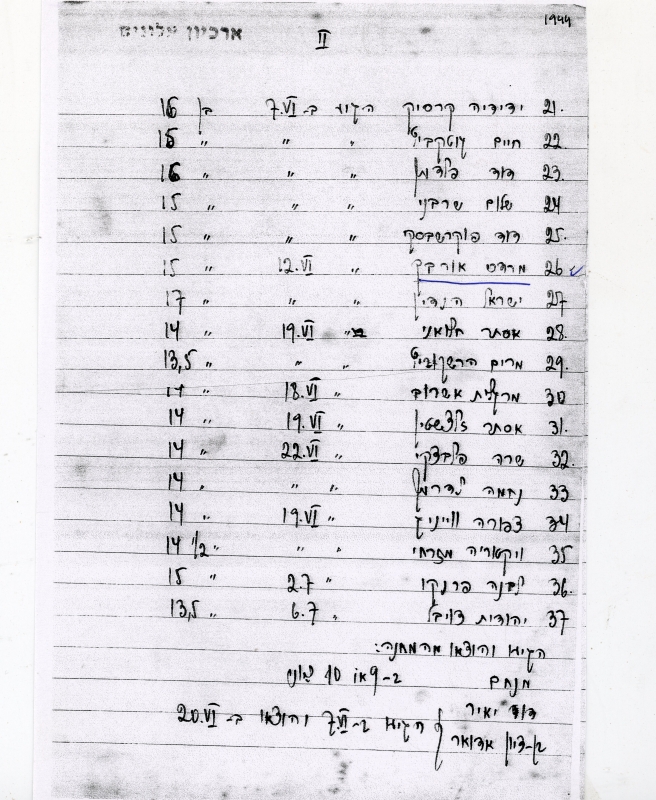 1944
ארכיון אלונים
II
21. ידידיה קרסיק הגיע ב-7.VI בן 16
22. חיים " " " 15
23. דוד פלדמן " " " 16
24 שלום שרבני " " " 15
25. דוד " " " 15
26 מרדכי אורבך " 12.VI " 15
27 ישראל " " " 17
28. אסתר " 19.VI " 14
29. מרים הרשקוביץ " " " 13,5
30 מרגלית אשרוב " 18.VI " 14
31. אסתר " 19.VI " 14
32. שרה " 22.VI " 14
33 נחמה לדרמן " " " 14
34 צפורה וייניץ " 19.VI " 14
35 ויקטוריה מזרחי " " " 14 1/2
36. לבנה פרנקו " 2.7 " 15
37 יהודית " 6.7 " 13,5
הגיעו והוצאו מהמחנה:
מנחם ב-9 או 10 ליוני
דוד יאיר
בן-ציון אדואר } הגיעו ב-7.VI והוצאו ב-20.VI